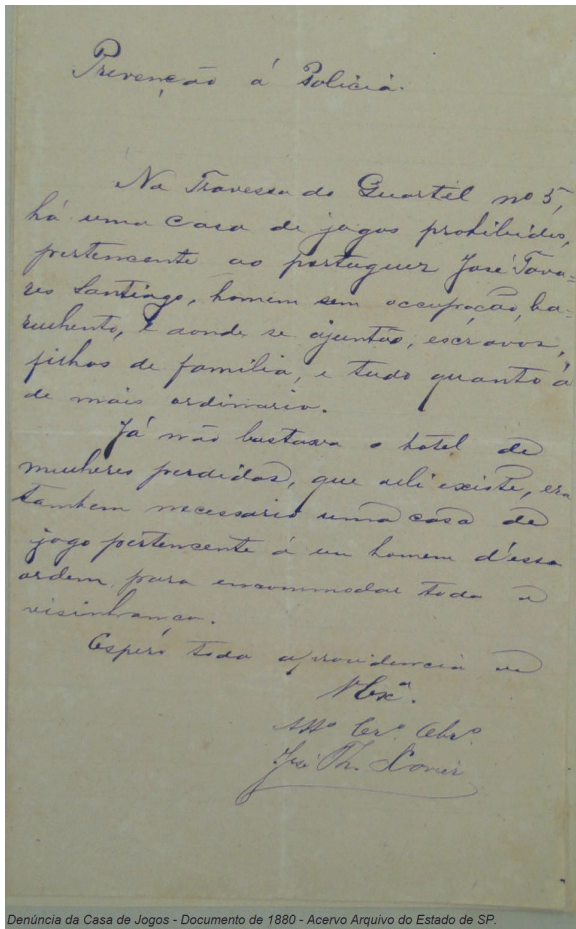 Prevenção á Policia.
Na Travessa do Quartél nº 5,
há uma casa de jogos prohibidos,
pertencente ao portuguez José Tava=
res Santiago, homem sem occupação, ba=
rulhento, é aonde se ajuntão, escravos,
filhos de familia, e tudo quanto á
de mais ordinario.
Já não bastava o hotel de
mulheres perdidas, que alli existe, era
tambem necessario uma casa de
jogo pertencente á un homem d'essa
ordem, para encommodar toda a
visinhança.
Espero toda a providencia de
V Exª.
Crº. Obrº.
José
Denúncia da Casa de Jogos - Documento de 1880 - Acervo Arquivo do Estado de SP.